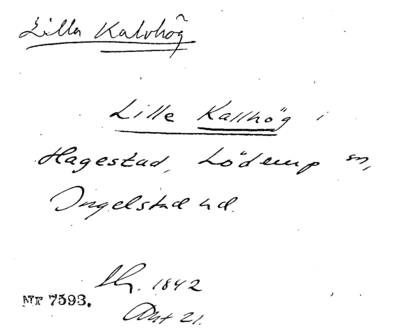 Lilla Kalvhög
Lille Kallhög i
Hagestad, Löderup sn,
Ingelstad hd.
Lh. 1842
Akt 21.
Nr 7593.